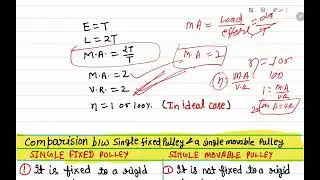 E = T
L = 2T
M.A. = 2T/T
M.A. = 2
V.R. = 2
η = 1 or 100%. (In ideal case)
M.A. = 2
M A = Load/effort = 2T/T
η = 1 or 100
η = M.A/V.R
1 = M.A/V.R
M.A = V.R
Comparision b/w Single fixed Pulley & a single movable Pulley
SINGLE FIXED PULLEY
SINGLE MOVABLE PULLEY
① It is fixed to a rigid
① It is not fixed to a rigid